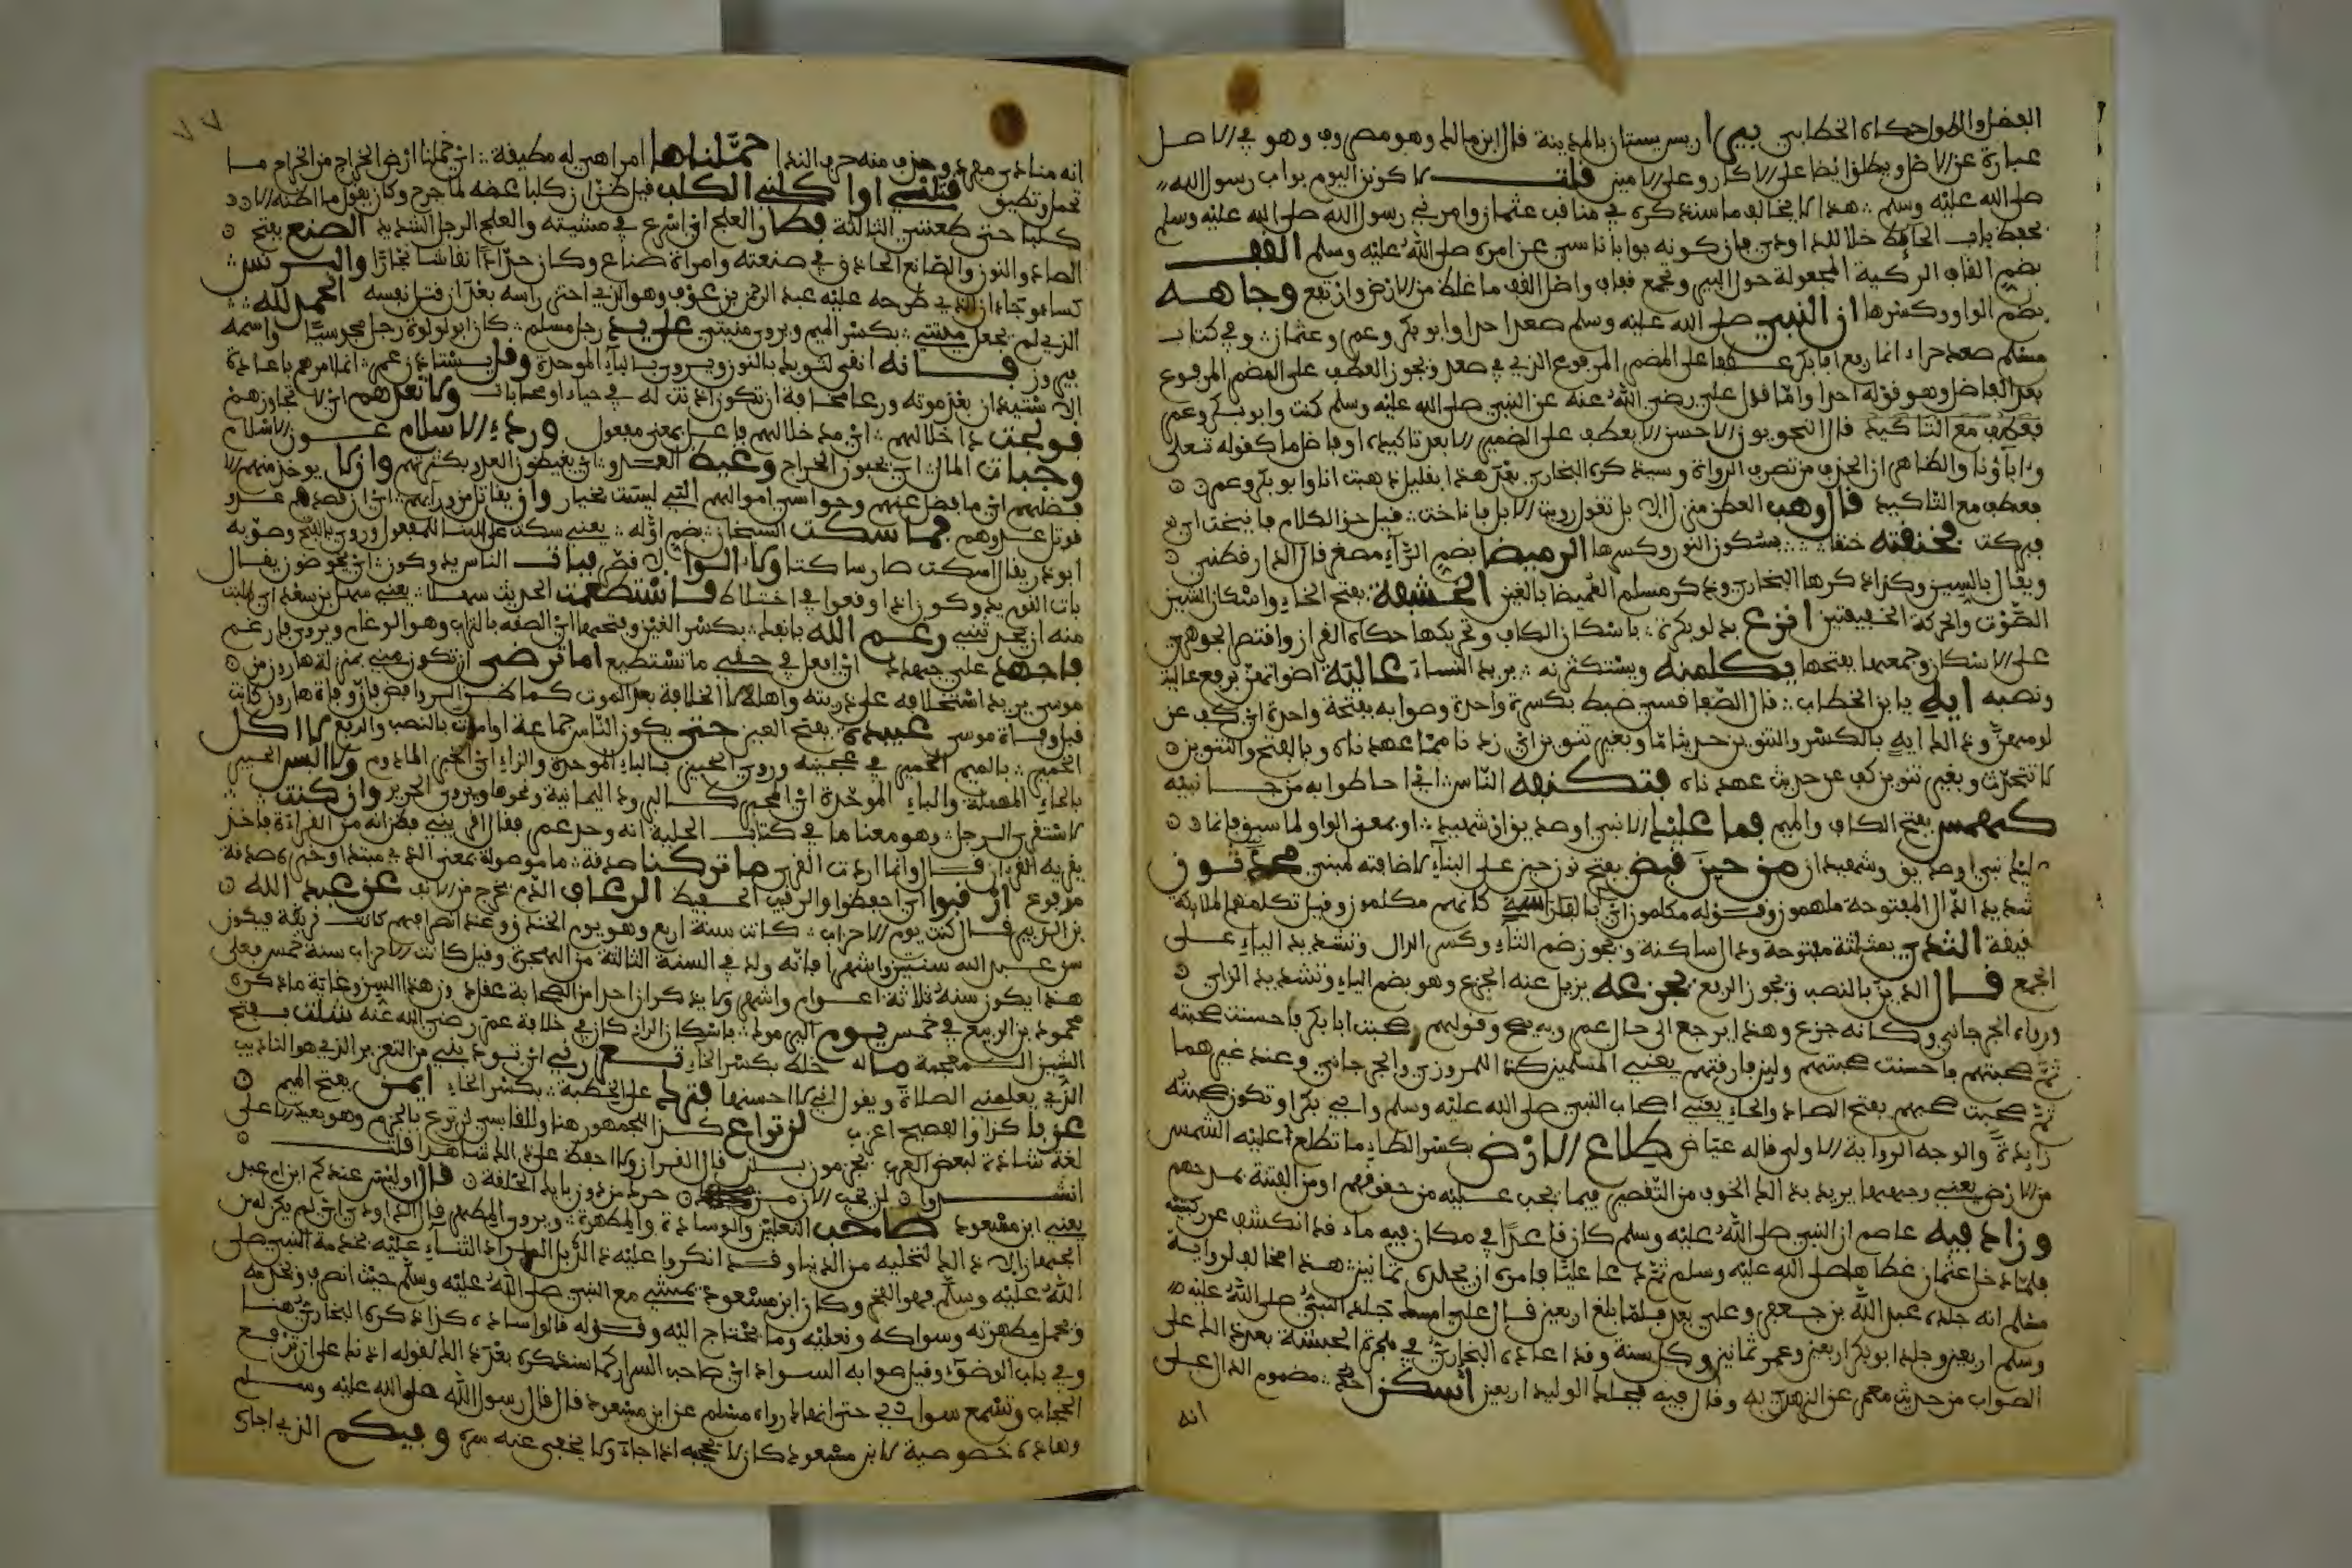 الفضل والطول حكاه الخطابي بير اريس بستان بالمدينة قال ابن مالك وهو مصروف وهو في الاصل
عبارة عن الاصل ويطلق ايضا على الاكار وعلى الامير قلت لاكونن اليوم بواب رسول الله
صلى الله عليه وسلم هذا لا يخالف ما سنذكره في مناقب عثمان وامرني رسول الله صلى الله عليه وسلم
بحفظ باب الحائط خلافا للداودي فان كونه بوابا ناشئ عن امره صلى الله عليه وسلم القف
بضم القاف الركية المجعولة حول البير وتجمع قفاف واصل القف ما غلظ من الارض وارتفع وجاهه
بضم الواو وكسرها ان النبي صلى الله عليه وسلم صعد احدا وابو بكر وعمر وعثمان وفي كتاب
مسلم صعد حراء انما رفع ابا بكر عطفا على المضمر المرفوع الذي في صعد ويجوز العطف على المضمر المرفوع
بعد الفاصل وهو قوله احدا واما قول علي رضي الله عنه عن النبي صلى الله عليه وسلم كنت وابو بكر وعمر
فعطف مع التاكيد قال النحويون الاحسن الا يعطف على الضمير الا بعد تاكيده او فاصل ما كقوله تعلى
ولا اباؤنا والظاهر ان الحذف من تصرف الرواة وسيذكره البخاري بعد هذا بقليل ذهبت انا وابو بكر وعمر
بعطف مع التاكيد قال وهب العطن مبرك الابل تقول رويت الابل فاناخت قيل حق الكلام فانيخت اي
فبركت فخنقه خنقا بسكون النون وكسرها الرميصا بضم الراء مصغر قال الدارقطني
ويقال بالسين وكذا ذكرها البخاري وذكر مسلم الغميصا بالغين الخشفة بفتح الخاء واسكان الشين
الصوت والحركة الخفيفتين انزع بدلو بكرة باسكان الكاف وتحريكها حكاه القزاز واقتصر الجوهري
على الاسكان وجمعها بفتحها يكلمنه ويستكثرنه يريد النساء عالية اصواتهن برفع عالية
ونصبه ايه يا بن الخطاب قال الصفاقسي ضبط بكسرة واحدة وصوابه بفتحة واحدة اي كف عن
لومهن وذلك ايه بالكسر والتنوين حديثا ما وبغير تنوين اي زدنا مما عهدناه وبالفتح والتنوين
لا تتحدث وبغير تنوين كف عن حديث عهدناه فتكنفه الناس اي احاطوا به من جانبيه
كهمس بفتح الكاف والميم فما عليك الا نبي او صديق او شهيد او بمعنى الواو لما سبق فانما
عليك نبي وصديق وشهيدان من حين قبض بفتح نون حين على البناء لاضافته لمبني محدثون
بتشديد الدال المفتوحة ملهمون وقوله مكلمون اي كانهم مكلمون وقيل تكلمهم الملائكة
حقيقة الثدي بمثلثة مفتوحة ودال ساكنة ويجوز ضم الثاء وكسر الدال وتشديد الياء على
الجمع قال الدين بالنصب ويجوز الرفع يجزعه يزيل عنه الجزع وهو بضم الياء وتشديد الزاي
ورواه الجرجاني وكانه جزع وهذا يرجع الى حال عمر وقولهم صحبت ابا بكر فاحسنت صحبته
ثم صحبتهم فاحسنت صحبتهم ولين فارقتهم يعني المسلمين كذا للمروزي والجرجاني وعند غيرهما
ثم صحبت صحبهم بفتح الصاد والحاء يعني اصحاب النبي صلى الله عليه وسلم وابي بكر او تكون صحبته
زايدة والوجه الرواية الاولى قاله عياض طلاع الارض بكسر الطاء ما تطلع عليه الشمس
من الارض يعني وجهها يريد بذلك الخوف من التقصير فيما يجب عليه من حقوقهم او من الفتنة بمدحهم
وزاد فيه عاصم ان النبي صلى الله عليه وسلم كان قاعدا في مكان فيه ماء قد انكشف عن ركبتيه
فلما دخل عثمان غطاها صلى الله عليه وسلم ثم دعا عليا فامره ان يجلده ثمانين هذا مخالف لرواية
مسلم انه جلده عبد الله بن جعفر وعلي يعد فلما بلغ اربعين قال علي امسك جلد النبي صلى الله عليه
وسلم اربعين وجلد ابو بكر اربعين وعمر ثمانين وكل سنة وقد اعاده البخاري في هجرة الحبشة بعد ذلك على
الصواب من حديث معمر عن الزهري به وقال فيه فجلد الوليد اربعين اسكن احد مضموم الدال على
انه
٧٧
انه منادى مفرد وحذف منه حرف الندا حملناها امرا هي له مطيقة اي حملنا ارض الخراج من الخراج ما
تحمل وتطيق قتلني او اكلني الكلب قيل ظن ان كلبا عضه لما جرح وكان يقول ما اظنه الا
كلبا حتى طعنني الثالثة فطار العلج اي اسرع في مشيته والعلج الرجل الشديد الصنع بفتح
الصاد والنون والصانع الحاذق في صنعته وامراة صناع وكان حدادا نقاشا نجارا والبرنس
كساء وجاء ان الذي طرحه عليه عبد الرحمن بن عوف وهو الذي احتز راسه بعد ان قتل نفسه الحمد لله
الذي لم يجعل ميتتي بكسر الميم ويروى منيتي على يد رجل مسلم كان ابو لولوة رجلا مجوسيا واسمه
فيروز فانه انقى لثوبك بالنون ويروى بالباء الموحدة وقل يستاذن عمر انما امرهم باعادة
الاستيذان بعد موته ورعا مخافة ان تكون اذنت له في حياته محاباة ولا تعدهم اي لا تجاوزهم
فولجت داخلا لهم اي مدخلا لهم فاعل بمعنى مفعول وردء الاسلام عون الاسلام
وجباة المال اي يجبون الخراج وغيظ العدو اي يغيظون العدو بكثرتهم وان لا يوخذ منهم الا
فضلهم اي ما فضل عنهم وحواشي اموالهم التي ليست بخيار وان يقاتل من ورائهم اي ان قصدهم عدو
قوتل عدوهم فاسكت الشيخان بضم اوله يعني سكت على البناء للمفعول وروي بالفتح وصوبه
ابو ذر يقال اسكت صار ساكتا ولا الوا اي لا اقصر فبات الناس يدوكون اي يخوضون يقال
بات القوم يدوكون اذا وقعوا في اختلاط فاستطعمت الحديث سهلا يعني سهل بن سعد اي طلبت
منه ان يحدثني رغم الله بانفك بكسر الغين وفتحها اي الصقه بالتراب وهو الرغام ويروى فارغم
فاجهد علي جهدك اي افعل في حقي ما تستطيع اما ترضى ان تكون مني بمنزلة هارون من
موسى يريد استخلافه على ذريته واهله لا الخلافة بعد الموت كما ظن الروافض فان وفاة هارون كانت
قبل وفاة موسى عبيدة بفتح العين حتى يكون الناس جماعة او اموت بالنصب والرفع لا اكل
الخمير بالميم الخمير في عجينه وروي الخبيز بالباء الموحدة والزاي اي الخبز المادوم ولا البس الحبير
بالحاء المهملة والباء الموحدة اي المحبر كالبرود اليمانية ونحوها ويروى الحرير وان كنت
لاستقري الرجل وهو معنا ما في كتاب الحلية انه وجد عمر فقال اقريني فظن انه من القراءة فاخذ
يقريه القران قال وانما اردت القرى ما تركنا صدقة ما موصولة بمعنى الذي مبتدا وخبره صدقة
مرفوع ارقبوا اي احفظوا والرقيب الحفيظ الرعاف الدم يخرج من الانف عن عبد الله
بن الزبير قال كنت يوم الاحزاب كانت سنة اربع وهو يوم الخندق وعند انصرافهم كانت قريظة فيكون
سن عبد الله سنتين واشهرا فانه ولد في السنة الثالثة من الهجرة وقيل كانت الاحزاب سنة خمس فعلى
هذا يكون سنه ثلاثة اعوام واشهر ولا يذكر ان احدا من الصحابة عقل دون هذا السن وغاية ما ذكره
محمود بن الربيع في خمس يوم اليرموك باسكان الراء كان في خلافة عمر رضي الله عنه شلت بفتح
الشين المعجمة ماله خلة بكسر الخاء تعزرني اي تودبني من التعزير الذي هو التاديب
الذي يعلمني الصلاة ويقول اني لا احسنها فترك علي الخطبة بكسر الخاء ايمن بفتح الميم
عزبا كذا والفصيح اعزب لن تراع كذا للجمهور هنا وللقابسي لن ترع بالجزم وهو بعيد الا على
لغة شاذة لبعض العرب يجزمون بلن قال القزاز ولا احفظ على ذلك شاهدا قلت
انشدوا لن يخب الان من حرك من دون بابك الحلقة قال او ليس عندكم ابن ام عبد
يعني ابن مسعود صاحب النعلين والوسادة والمطهرة ويروى المطهر قال الداودي اي لم يكن له من
الجهاز الا ذلك لتخليه من الدنيا وقد انكروا عليه ذلك بل المراد الثناء عليه بخدمة النبي صلى
الله عليه وسلم فهو الفخر وكان ابن مسعود يمشي مع النبي صلى الله عليه وسلم حيث انصرف ويخدمه
ويحمل مطهرته وسواكه ونعليه وما يحتاج اليه وقوله قالوا ساده كذا ذكره البخاري هنا
وفي باب الوضوء وقيل صوابه السواد اي صاحب السرار كما سنذكره بعد ذلك لقوله اذنك علي ان ترفع
الحجاب وتسمع سوادي حتى انهاك رواه مسلم عن ابن مسعود قال قال رسول الله صلى الله عليه وسلم
وهذه خصوصية لابن مسعود كان لا يحجبه اذا جاءه ولا يخفي عنه سره وفيكم الذي اجاره